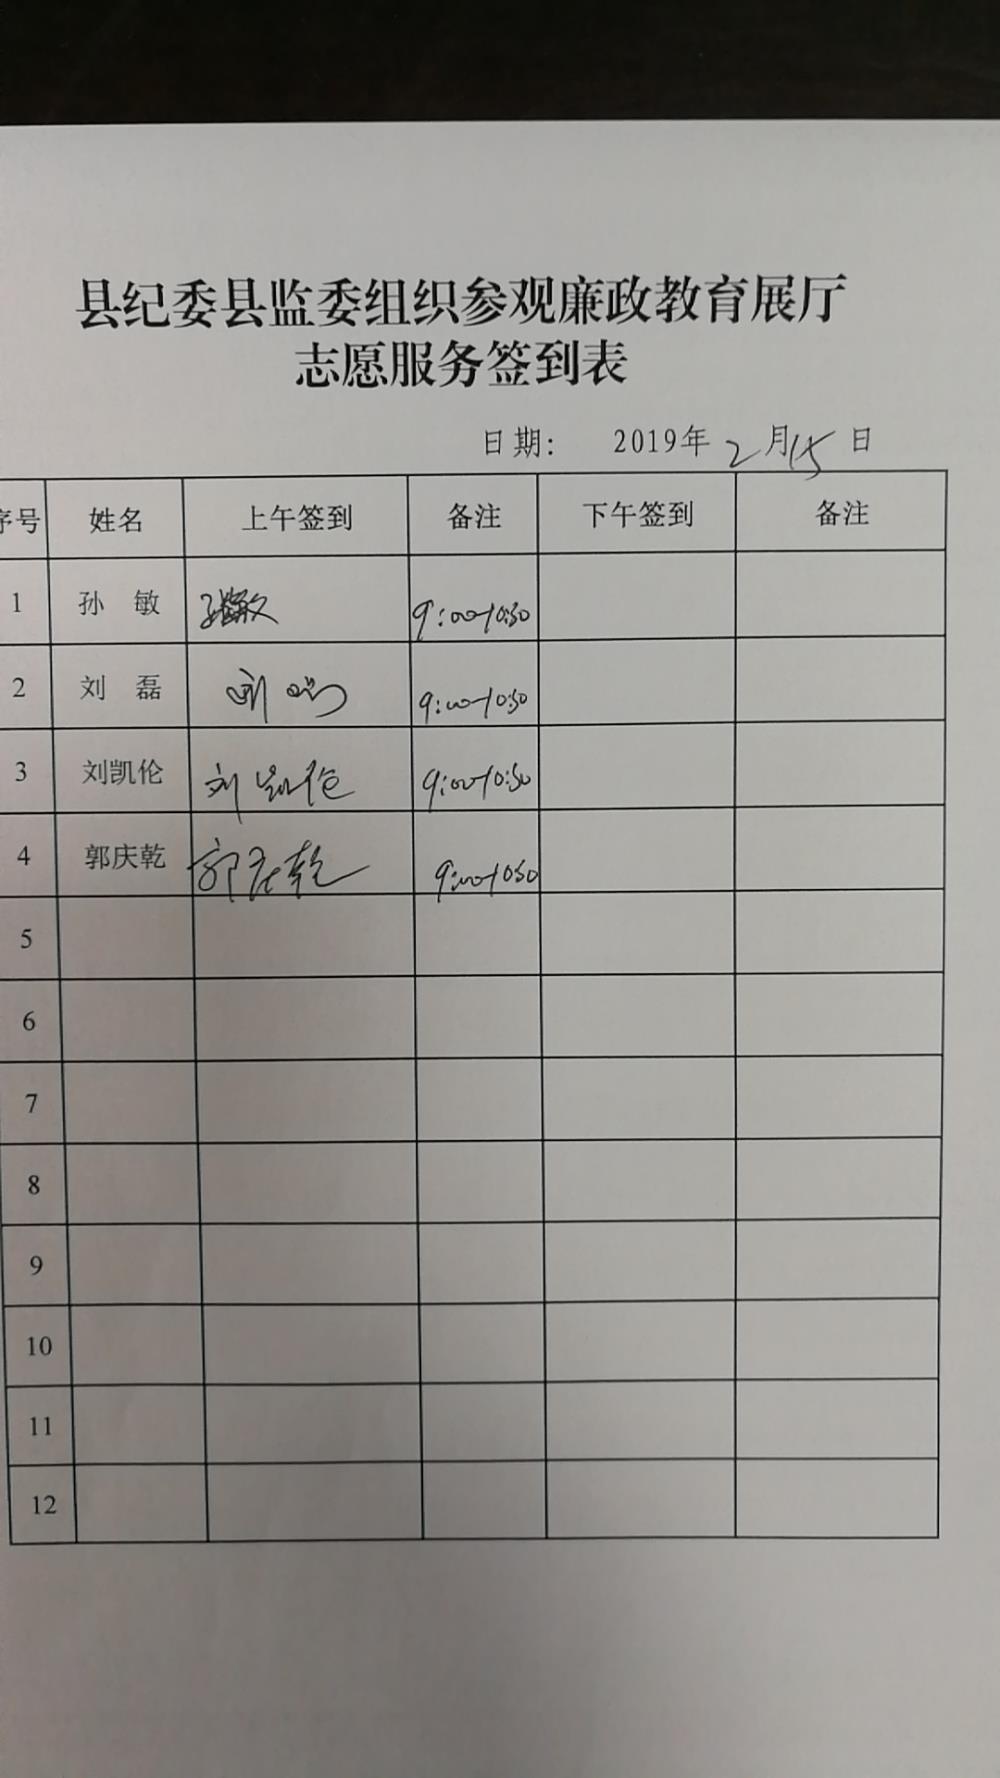 县纪委县监委组织参观廉政教育展厅
志愿服务签到表
日期： 2019年 2 月 15 日
序号 姓名 上午签到 备注 下午签到 备注
1 孙 敏 孙敏 9:00-10:30
2 刘 磊 刘磊 9:00-10:30
3 刘凯伦 刘凯伦 9:00-10:30
4 郭庆乾 郭庆乾 9:00-1030
5
6
7
8
9
10
11
12